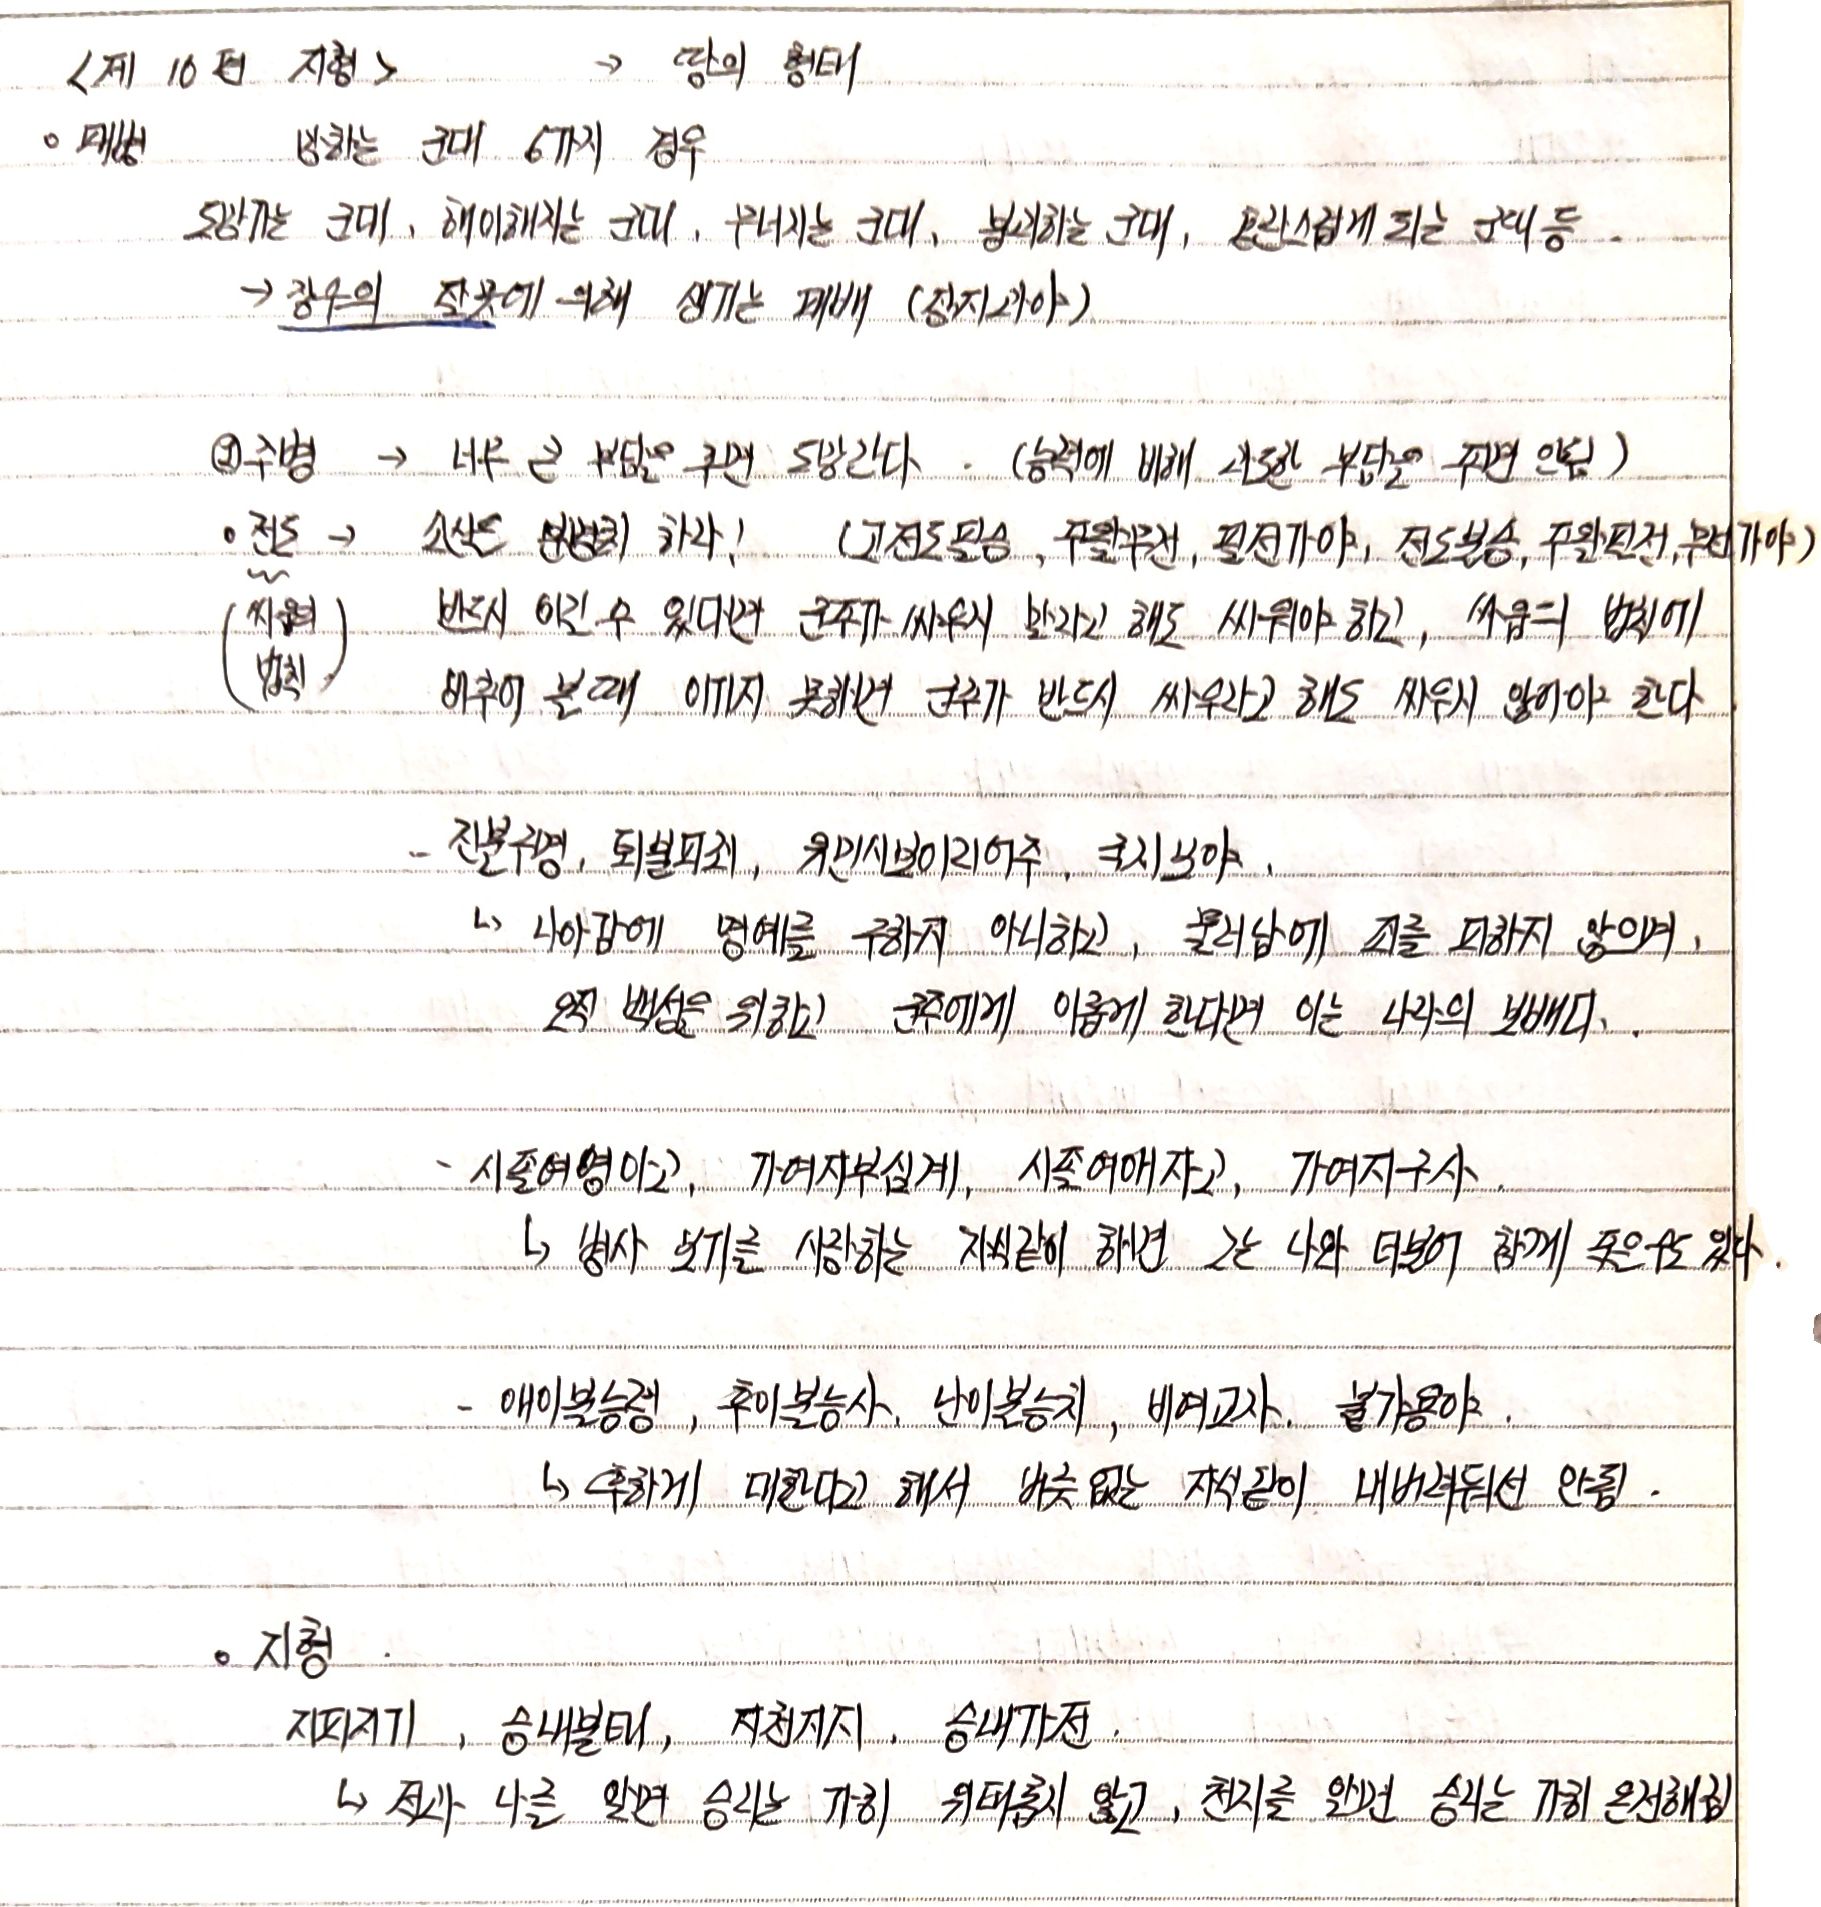 <제 10편 지형> → 땅의 형태
◦ 패병 망하는 군대 6가지 경우
도망가는 군대, 해이해지는 군대, 무너지는 군대, 붕괴하는 군대, 혼란스럽게 되는 군대 등
→ 장수의 잘못에 의해 생기는 패배 (장지과야)
① 주병 → 너무 큰 부담을 주면 도망간다. (능력에 비해 과도한 부담을 주면 안됨)
◦ 전도 → 소신도 분명히 하라! (고전도필승, 주왈무전, 필전가야, 전도불승, 주왈필전, 무전가야)
(싸움의 법칙) 반드시 이길 수 있다면 군주가 싸우지 말라고 해도 싸워야 하고, 싸움의 법칙에
비추어 볼 때 이기지 못하면 군주가 반드시 싸우라고 해도 싸우지 않아야 한다
- 진불구명, 퇴불피죄, 유민시보이리어주, 국지보야.
↳ 나아감에 명예를 구하지 아니하고, 물러남에 죄를 피하지 않으며,
오직 백성을 위하고 군주에게 이롭게 한다면 이는 나라의 보배다.
- 시졸여영아고, 가여지부심계, 시졸여애자고, 가여지구사.
↳ 병사 보기를 사랑하는 자식같이 하면 그는 나와 더불어 함께 죽을수도 있다.
- 애이불능령, 후이불능사, 난이불능치, 비여교자. 불가용야.
↳ 후하게 대한다고 해서 버릇 없는 자식같이 내버려둬선 안됨.
◦ 지형.
지피지기, 승내불태, 지천지지, 승내가전.
↳ 적과 나를 알면 승리는 가히 위태롭지 않고, 천지를 알면 승리는 가히 온전해짐